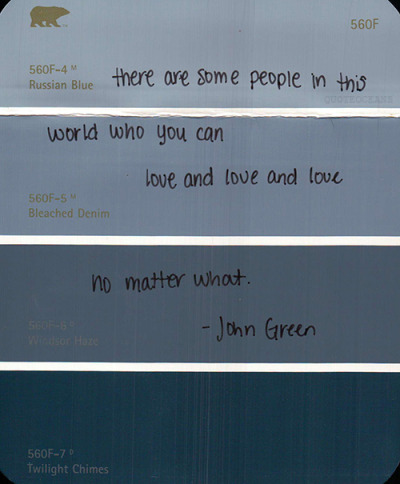 560F
560F-4 M
Russian Blue
there are some people in this
QUOTEOCEANS
world who you can
love and love and love
560F-5 M
Bleached Denim
no matter what.
560F-6 D
Windsor Haze
- John Green
560F-7 D
Twilight Chimes